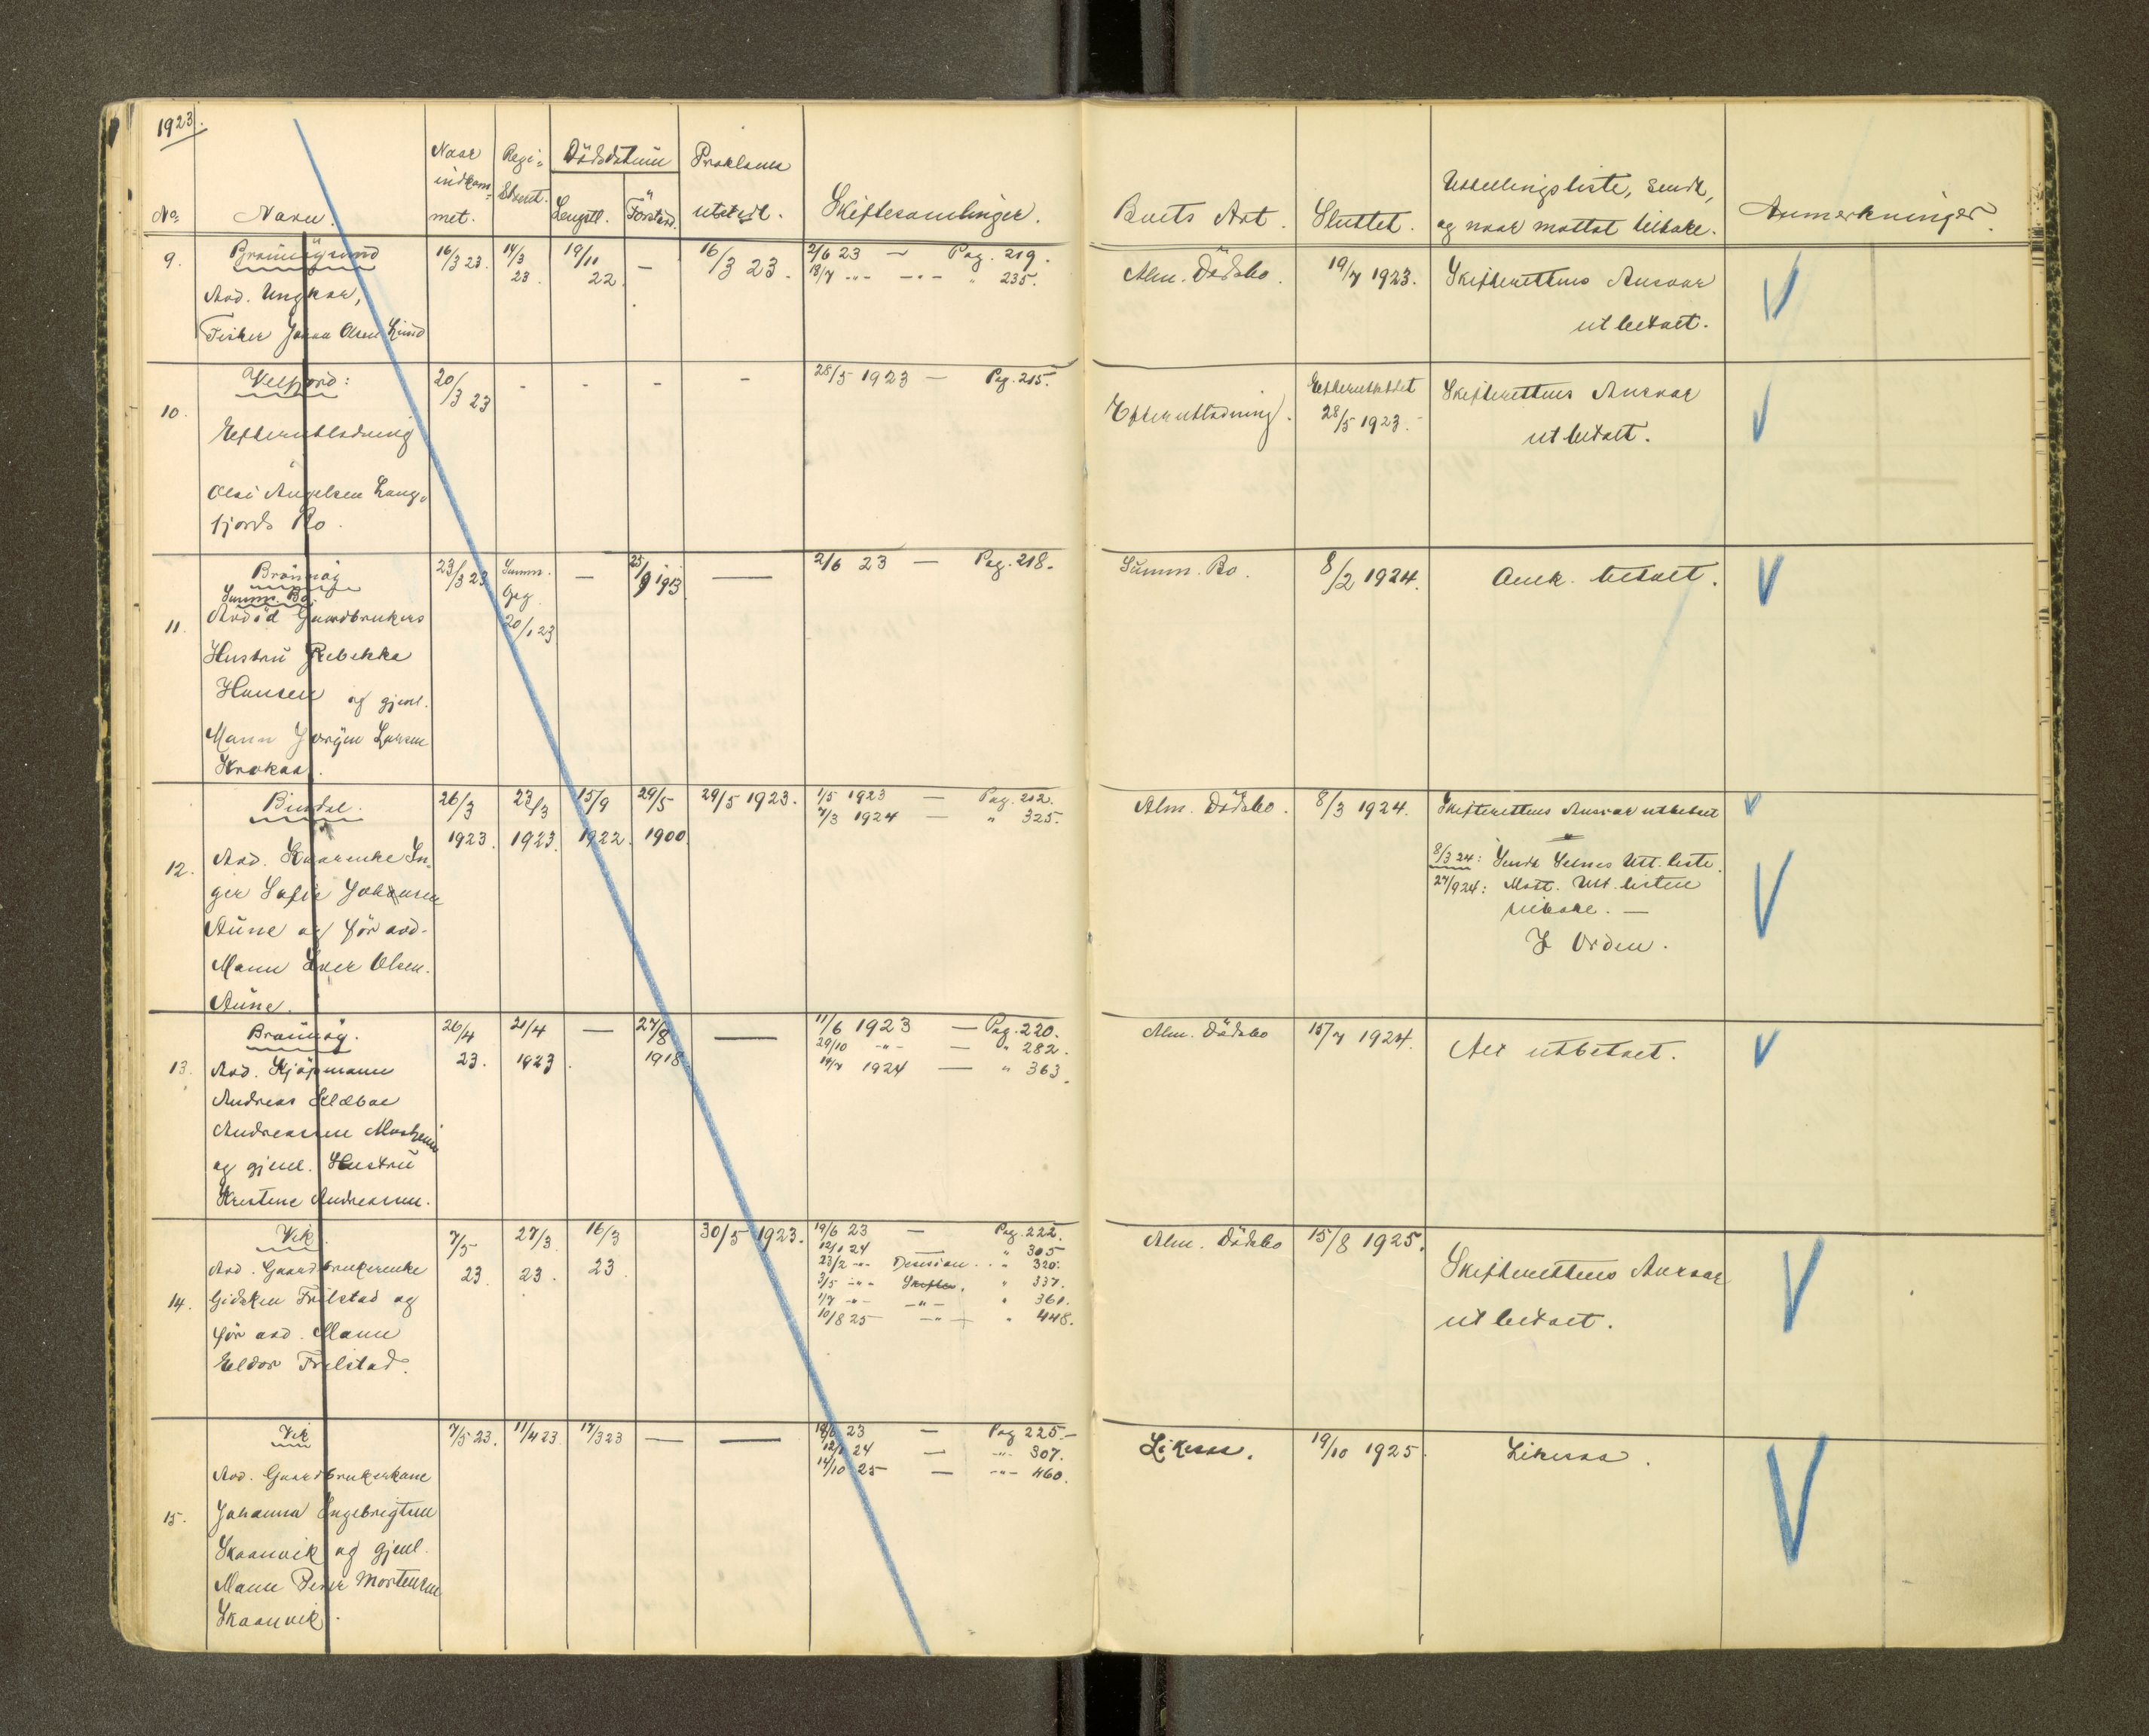 1923.
No. Navn. Naar indkom-met. Regi-strert. Dödsdatum Lengstl. Förstavd. Proklama utstedt. Skiftesamlinger. Boets Art. Sluttet. Utdelingsliste, sendt, og naar mottat tilbake. Anmerkninger.
9. Brönnöysund 16/3 23. 14/3 23. 19/11 22. — 16/3 23. 2/6 23 — Pag. 219. Alm. Dödsbo. 19/7 1923. Skifterettens Ansvar
Avd. Ungkar, 13/7 -"- -"- " 235. utbetalt.
Fisker Johan Olsen Lund
10. Velfjord: 20/3 23 - - - - 28/5 1923 — Pag. 215. Efterutlodning. Efterutloddet 28/5 1923. Skifterettens Ansvar
Efterutlodning utbetalt.
Olai Angelsen Lang-
fjords Bo.
11. Brönnöy 23/3 23 Summ. beg. 20/1 23 — 25/9 1913 — 2/6 23 — Pag. 218. Summ. Bo. 8/2 1924. Amk. betalt.
Summ. Bo.
Avdöd Gaardbrukers
Hustru Rebekka
Hansen og gjenl.
Mann Jörgen Larsen
Krokaa.
12. Bindal. 26/3 1923. 23/3 1923. 15/9 1922. 29/5 1900. 29/5 1923. 1/5 1923 — Pag. 212. Alm. Dödsbo. 8/3 1924. Skifterettens Ansvar utbetalt
7/3 1924 — " 325.
Avd. Kaarenke In-
ger Sofie Johansen 8/3 24: Sendt Utl. liste.
Aune og før avd. 27/9 24: Mott. Utl. listen
Mann Iver Olsen tilbake. —
Aune. I Orden.
13. Brönnöy. 26/4 23. 21/4 1923. — 27/8 1918 — 11/6 1923 — Pag. 220. Alm. Dödsbo 15/7 1924. Alt utbetalt.
Avd. Kjöpmann 29/10 -"- — " 282.
Andreas Klæboe 14/7 1924 — " 363.
Andreassen
og gjenl. Hustru
Kristine Andreassen.
14. Vik. 7/5 23. 27/3 23. 16/3 23 30/5 1923. 19/6 23 — Pag. 222. Alm. Dödsbo 15/8 1925. Skifterettens Ansvar
Avd. Gaardbrukerenke 12/1 24 " 305 utbetalt.
Gidsken Frilstad og 23/2 -"- Decision.. " 320.
før avd. Mann 3/5 -"- Skiftes. " 337.
Eldor Frilstad. 1/7 -"- -"- " 361.
10/8 25 -"- " 448.
15. Vik 7/5 23. 11/4 23. 17/3 23 — — 19/6 23 — Pag 225.— Likesaa. 19/10 1925. Likesaa.
Avd. Gaardbrukerkone 12/1 24 — -"- 307.
Johanna Ingebrigtsen 14/10 25 — -"- 460.
Skaanvik og gjenl.
Mann Peder Mortensen
Skaanvik.